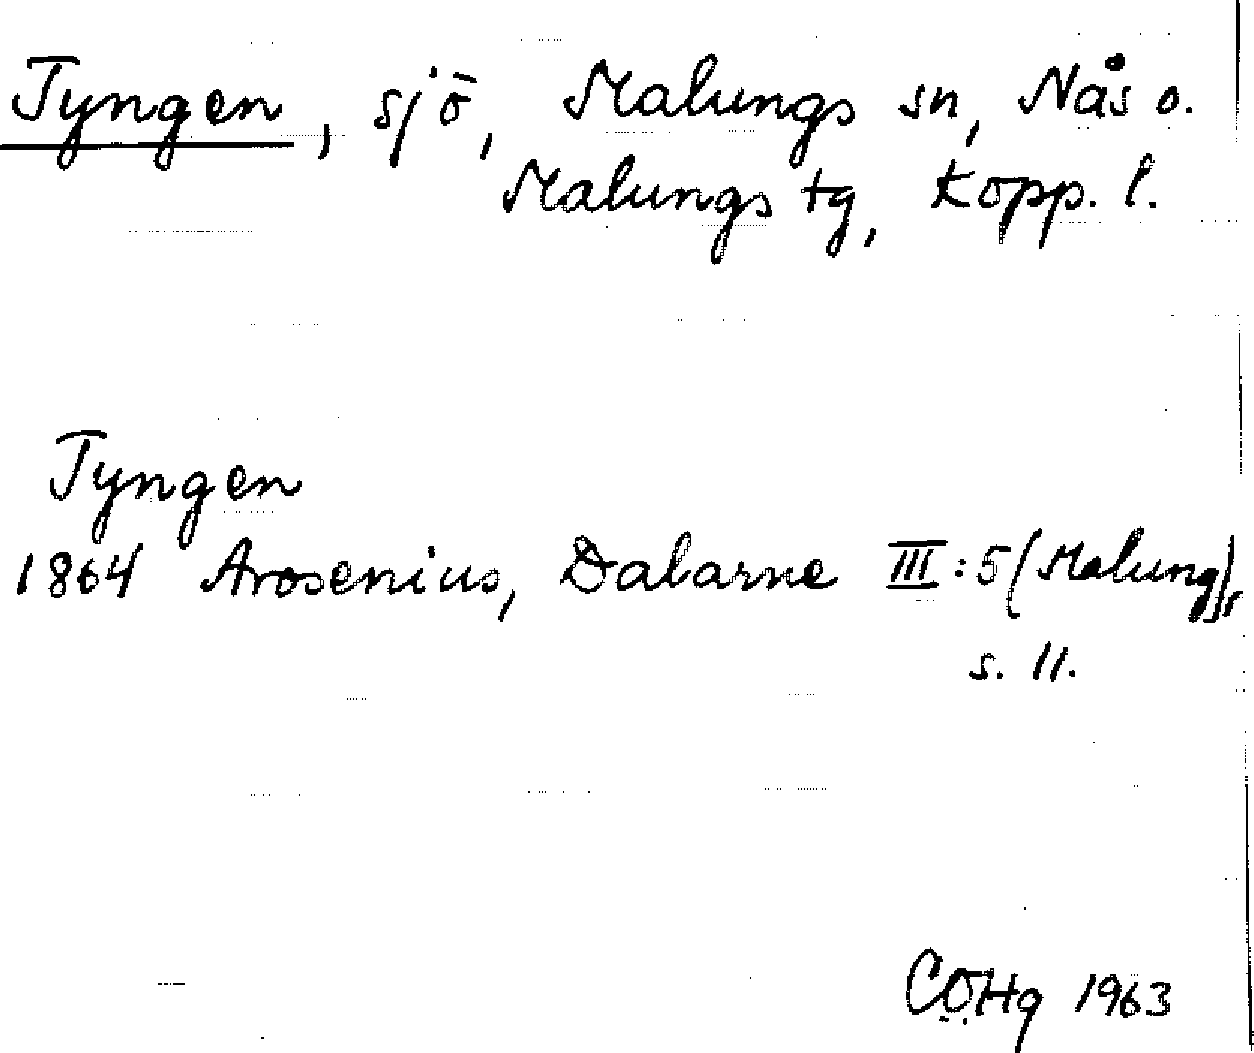 Tyngen, sjö, Malungs sn, Nås o.
Malungs tg, Kopp. l.
Tyngen
1864 Arosenius, Dalarne III:5 (Malung),
s. 11.
1963